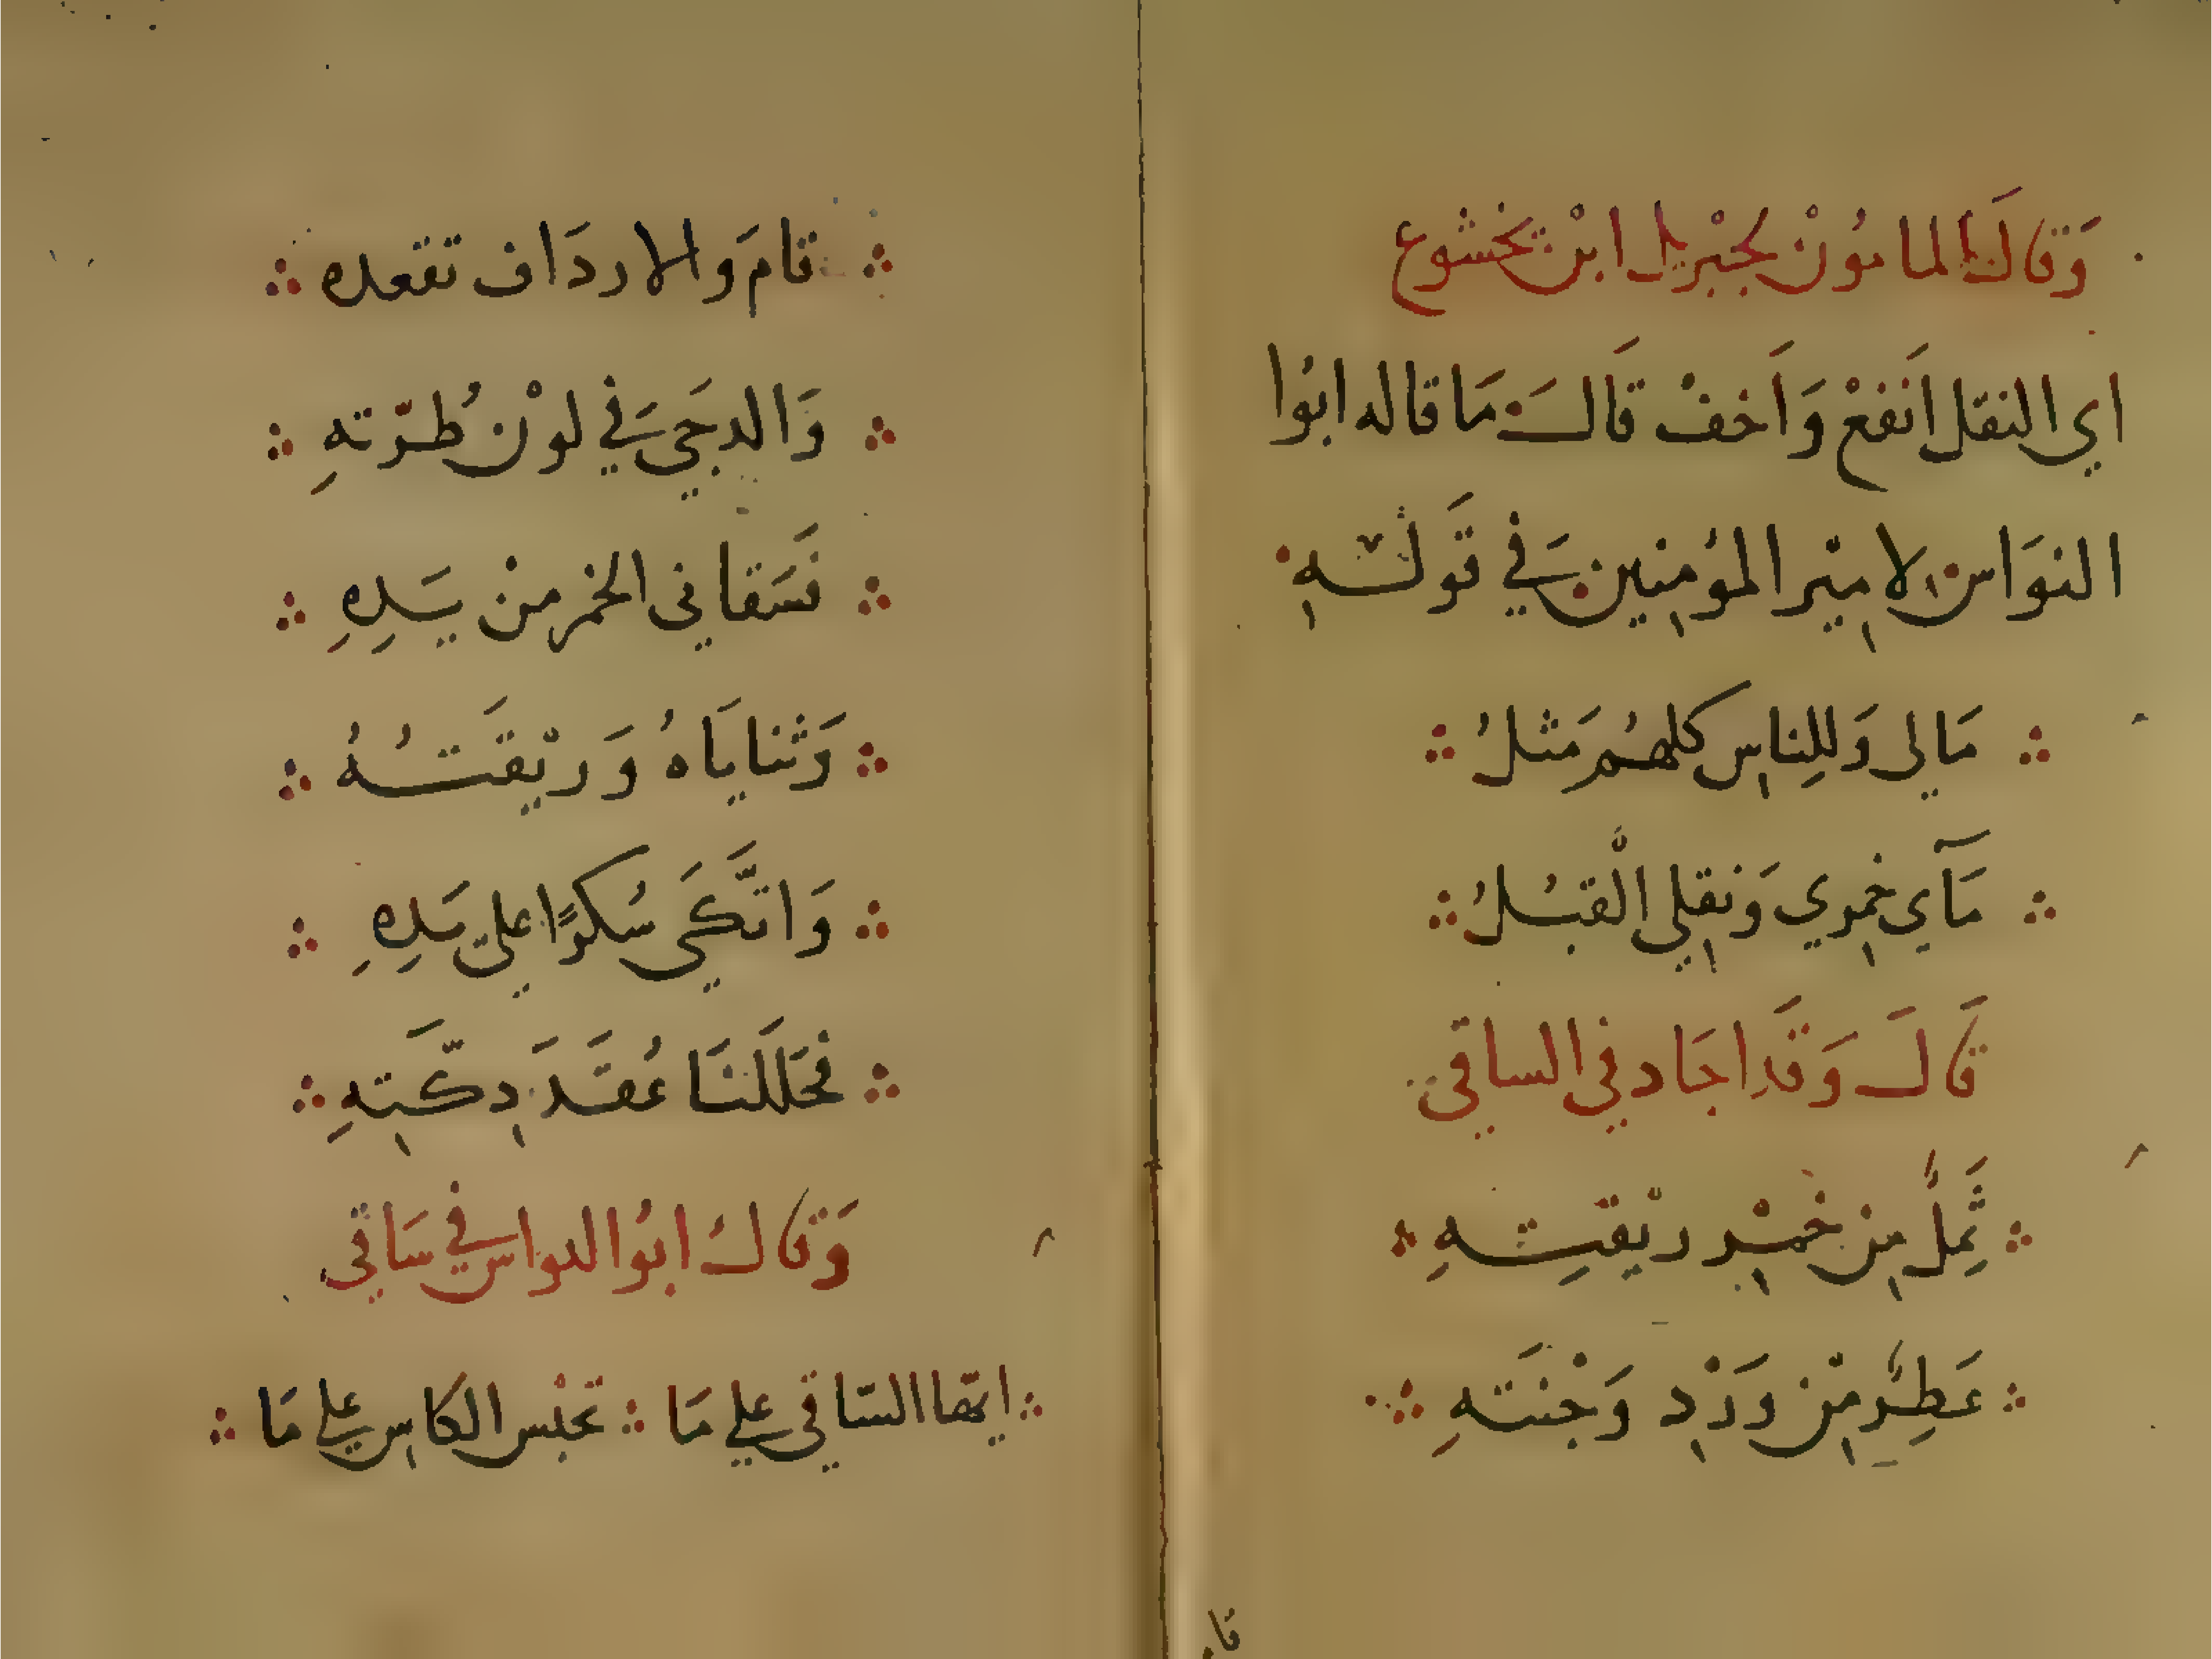 وَقَالَ المامُونْ لجبْريل ابنْ بختشوع
اي النقل اَنفعْ وَاَخفْ قَالَ مَا قاله ابُوا
النوَاس لامِيْر المؤمِنِين فَي قَولتهِ
مَالي وَللِناسِ كلهُم مَثلُ
مَآي خمرِي وَنقلِي الْقبُلُ
قَالَ وَقَد اجَاد في الساقي
ثَمِلٌ مِن خمْرِ ريْقتِهِ
عَطِرٌ مِنْ وَرْدِ وَجْنَتهِ
قا
قامَ وَالاردَاف تقعده
وَالدجَي فَي لوْن طُرّتهِ
فَسَقاني الخمر منْ يَدِهِ
وَثنايَاهُ وَريْقَتُهُ
وَاتَّكَي سُكرًا علي يَدِهِ
فحَلَلنَا عُقَدَ دِكَّتِهِ
وَقَالَ ابُوا النواس في سَاقي
ايّها السّاقي علي مَا تحبْس الكاسِ علي مَا